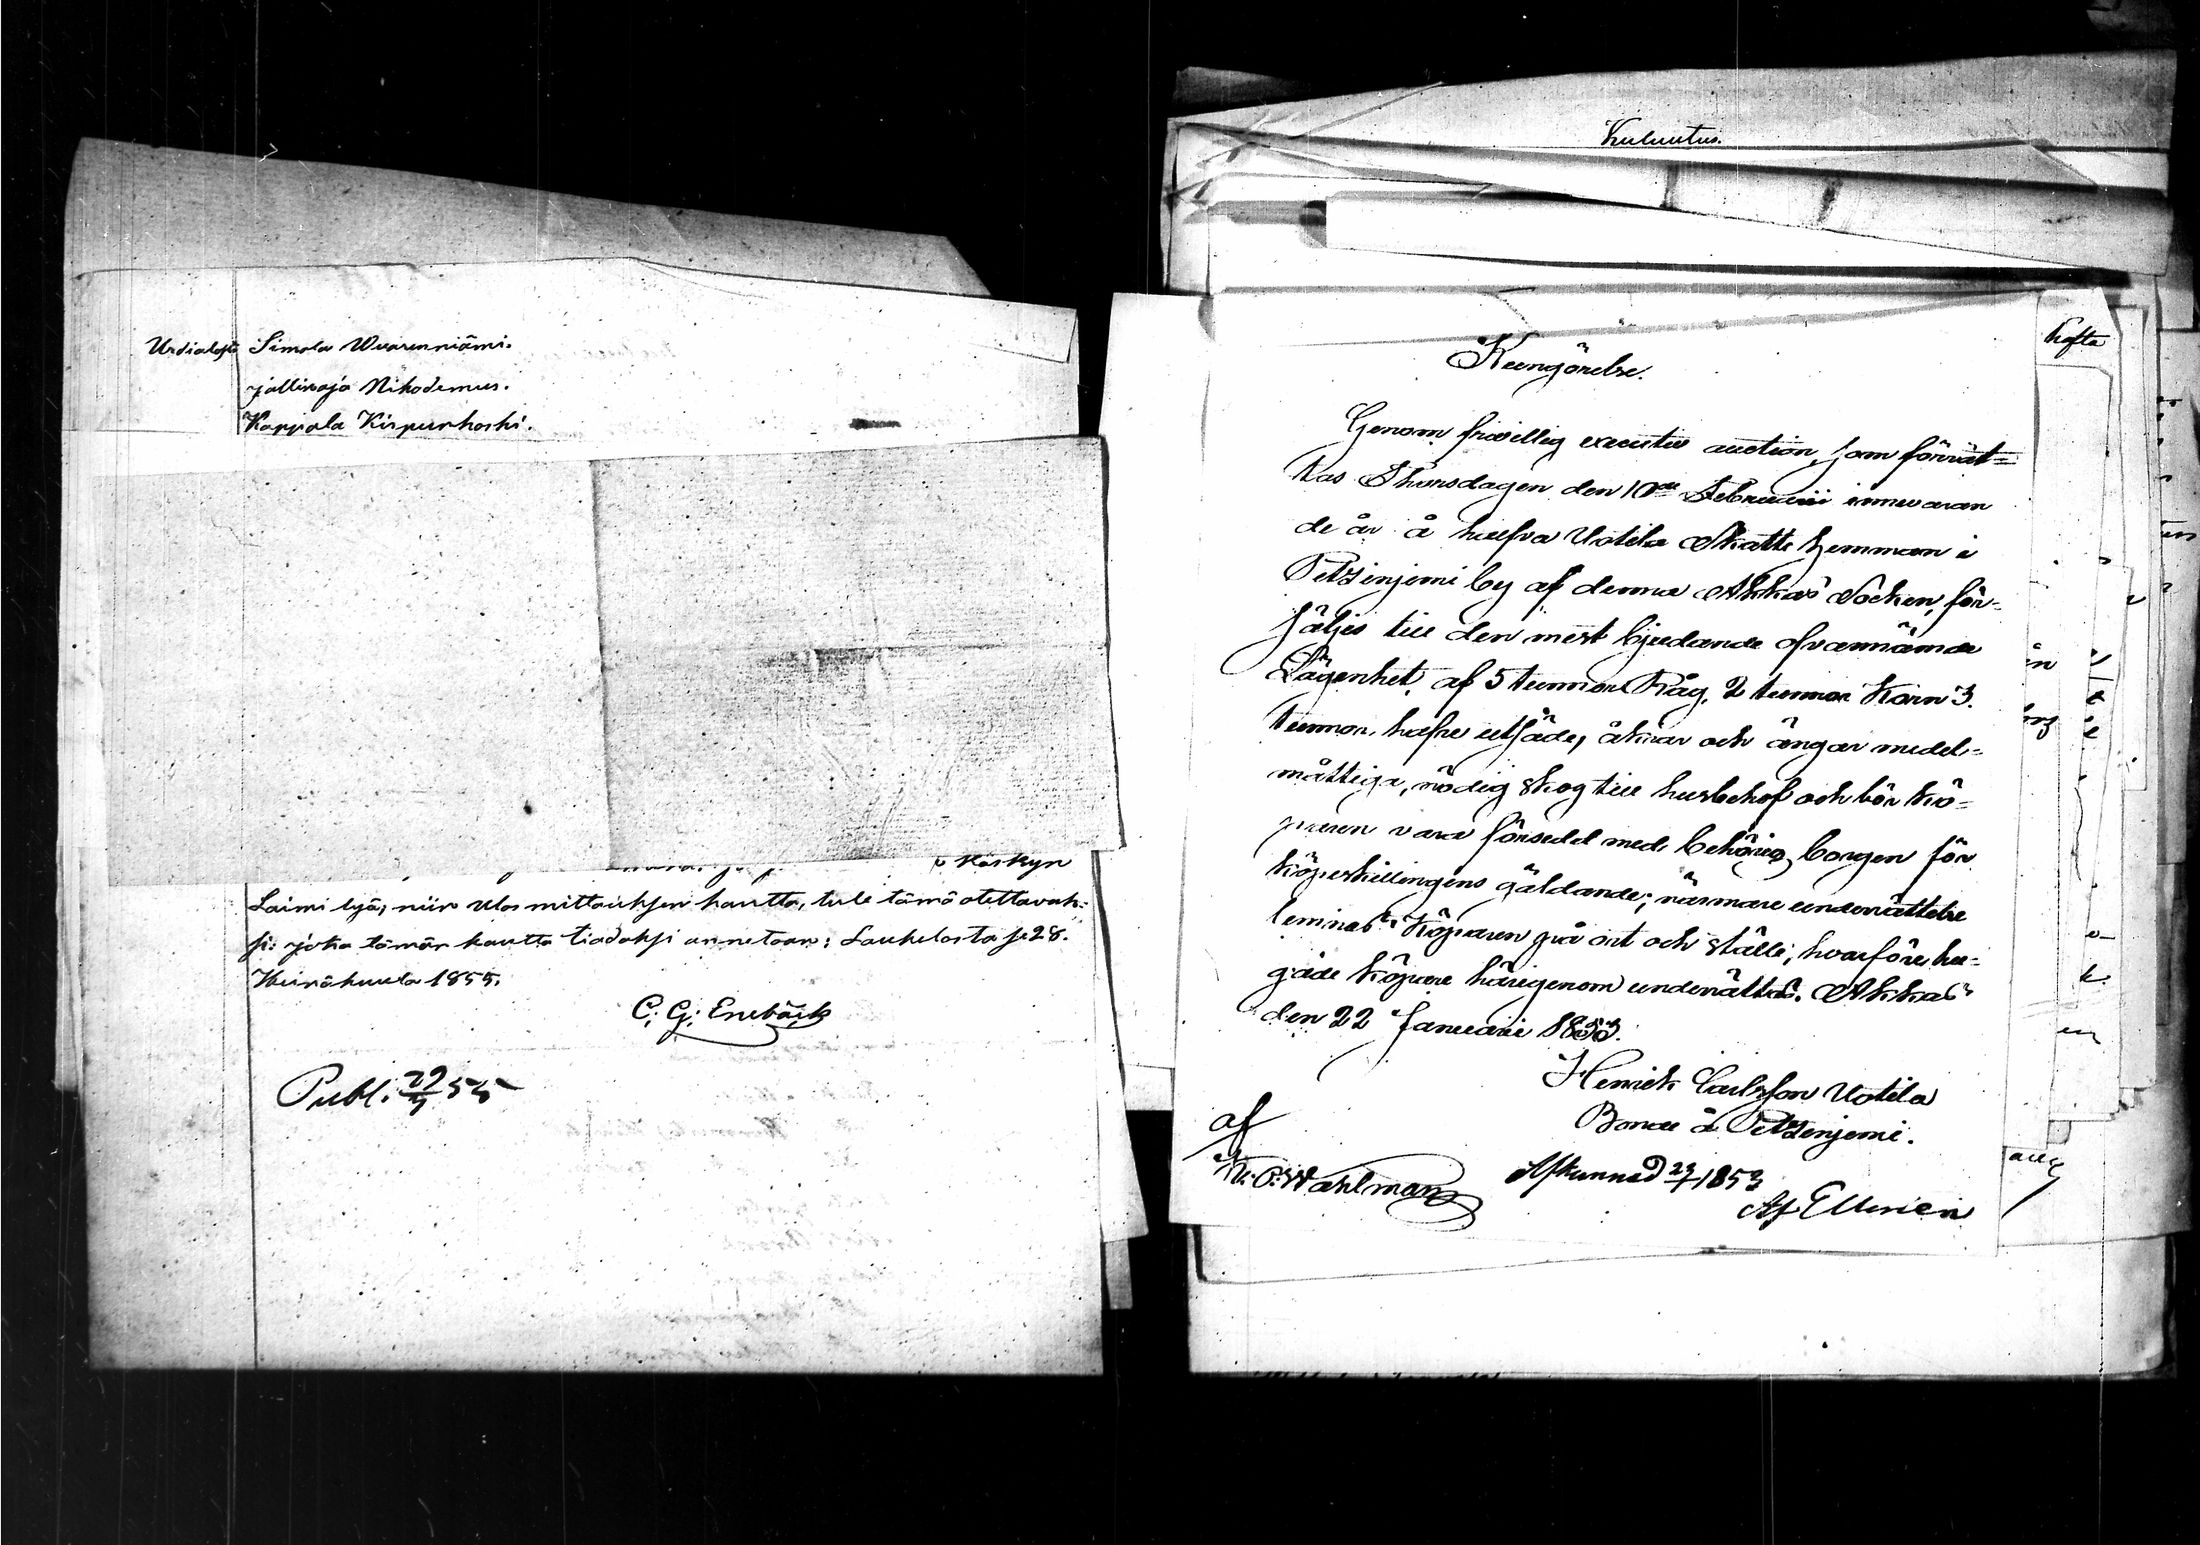 Urdialasta Simola Wuorenniämi.
jällinaja Nikodemus.
Kappola Kirpunkoski.
Käskyn
Laimi lyä, niin Ulos mittauksen kautta, tule tämä otettavak-
si: joka tämän kautta tiadoksi annetaan: Laukelasta p: 28.
Heinäkuuta 1855.
C. G. Enebäck
Publ. 29/7 55
Kuluutus.
Kungörelse.
Genom friwillig executiv auction, som förrät-
tas Thorsdagen den 10de Februarii innevaran
de år å halfva Uotila Skatte hemman i
Petzinjemi by af denna Akkas Socken, för-
säljes till den mest bjudande ofvannämde
Lägenhet, af 5 tunnor Råg, 2 tunnor Korn 3.
tunnor hafre utsäde, åkrar och ängar medel-
måttiga, nödig skog till husbehof och bör kö-
paren vara försedd med behörig borgen för
köpeskillingens gäldande; närmare underrättelse
lemnas Köparen på ort och ställe, hvarföre hu-
gade köpare härigenom underrättas. Akkas
den 22 Januarii 1853.
Henrick Carlsson Uotila
Bonde å Petzinjemi.
af
Wahlman
Afkunnad 23/1 1853
Af Ellmén